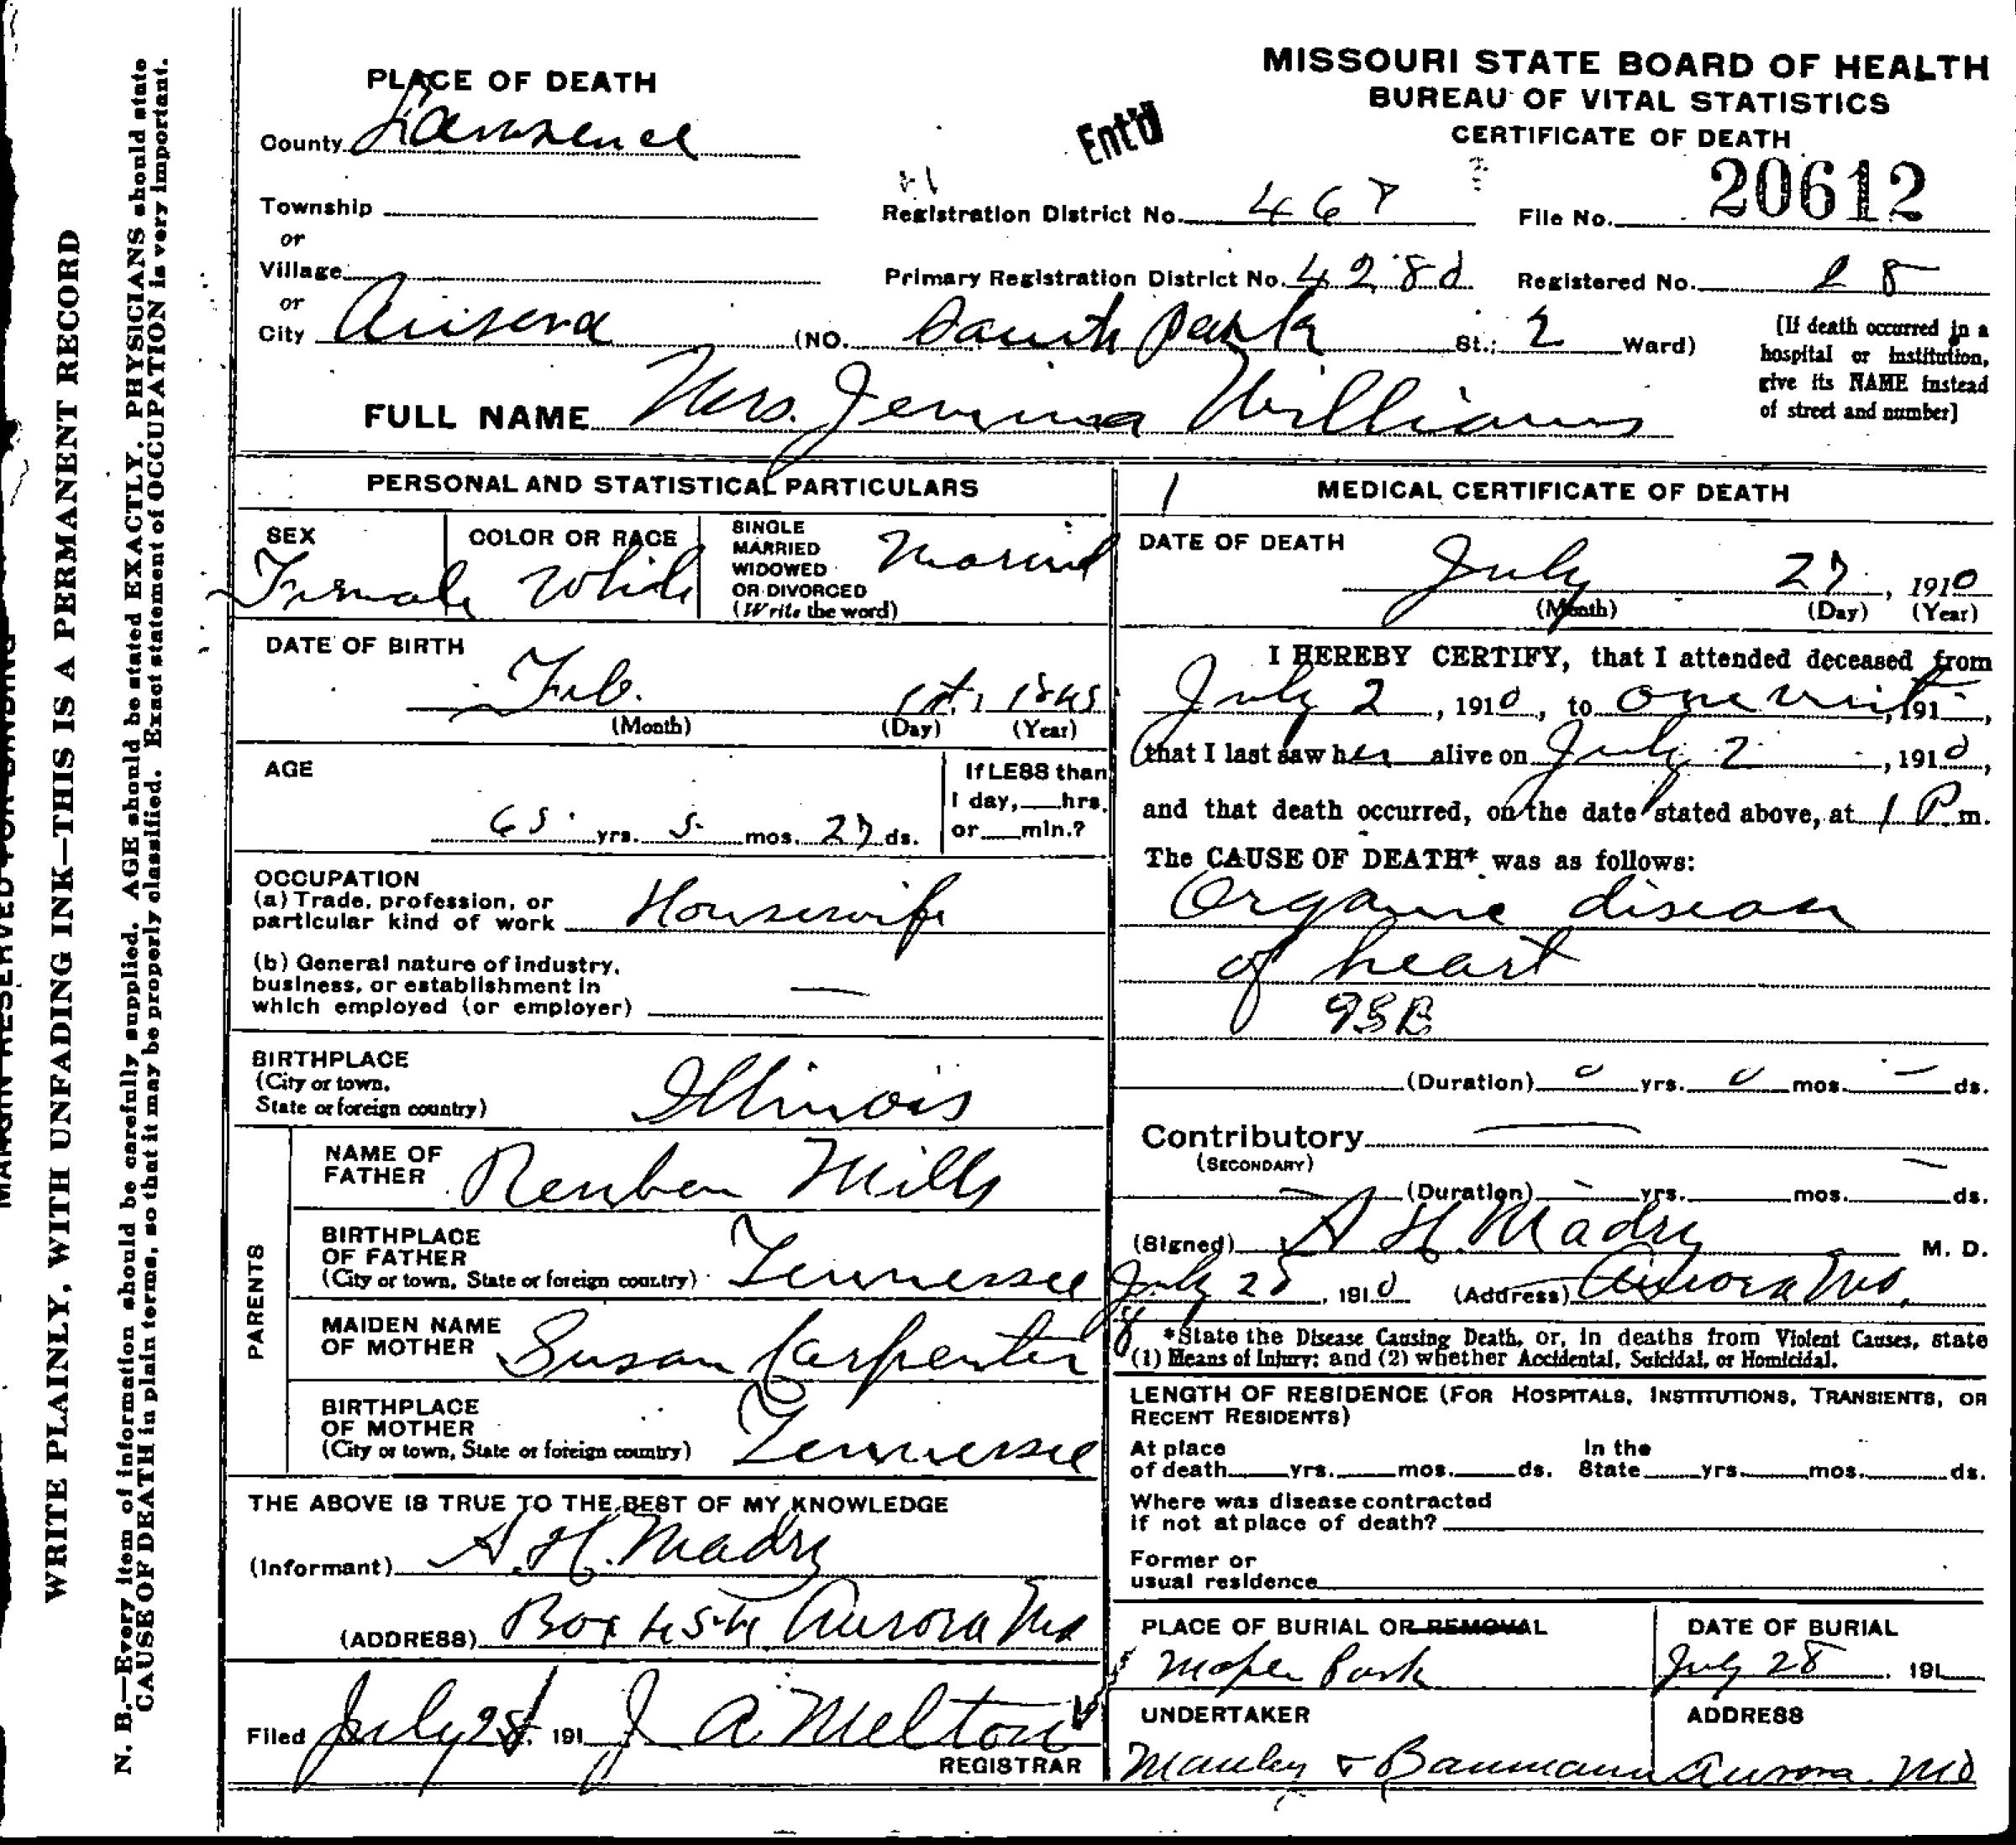 MISSOURI STATE BOARD OF HEALTH
BUREAU OF VITAL STATISTICS
CERTIFICATE OF DEATH
PLACE OF DEATH
County Lawrence
Ent'd
Township
or
Village
or
City Aurora (NO. South Park St.; 2 Ward)
Registration District No. 467
File No. 20612
Primary Registration District No. 428
Registered No. 28
[If death occurred in a
hospital or institution,
give its NAME instead
of street and number]
FULL NAME Mrs. Jemima Williams
PERSONAL AND STATISTICAL PARTICULARS
SEX
Female
COLOR OR RACE
White
SINGLE
MARRIED
WIDOWED
OR DIVORCED
(Write the word)
Married
DATE OF BIRTH
Feb. 1st, 1845
(Month) (Day) (Year)
AGE
65 yrs. 5 mos. 27 ds.
If LESS than
1 day, hrs.
or min.?
OCCUPATION
(a) Trade, profession, or
particular kind of work Housewife
(b) General nature of industry,
business, or establishment in
which employed (or employer) —
BIRTHPLACE
(City or town,
State or foreign country) Illinois
PARENTS
NAME OF
FATHER Reuben Mills
BIRTHPLACE
OF FATHER
(City or town, State or foreign country) Tennessee
MAIDEN NAME
OF MOTHER Susan Carpenter
BIRTHPLACE
OF MOTHER
(City or town, State or foreign country) Tennessee
THE ABOVE IS TRUE TO THE BEST OF MY KNOWLEDGE
(Informant) A. H. Madry
(ADDRESS) Box 454 Aurora Mo
Filed July 28, 191 J A Melton
REGISTRAR
MEDICAL CERTIFICATE OF DEATH
DATE OF DEATH
July 27, 1910
(Month) (Day) (Year)
I HEREBY CERTIFY, that I attended deceased from
July 2, 1910, to one visit, 191 ,
that I last saw her alive on July 2, 1910,
and that death occurred, on the date stated above, at 1 P m.
The CAUSE OF DEATH* was as follows:
Organic disease
of heart
(Duration) 0 yrs. 0 mos. – ds.
Contributory —
(SECONDARY)
(Duration) – yrs. mos. – ds.
(Signed) A H. Madry M. D.
July 28, 1910 (Address) Aurora Mo.
*State the Disease Causing Death, or, in deaths from Violent Causes, state
(1) Means of Injury; and (2) whether Accidental, Suicidal, or Homicidal.
LENGTH OF RESIDENCE (FOR HOSPITALS, INSTITUTIONS, TRANSIENTS, OR
RECENT RESIDENTS)
At place
of death yrs. mos. ds.
In the
State yrs. mos. ds.
Where was disease contracted
if not at place of death?
Former or
usual residence
PLACE OF BURIAL OR REMOVAL
Maple Park
DATE OF BURIAL
July 28, 191
UNDERTAKER
Manley & Baumann
ADDRESS
Aurora. Mo
WRITE PLAINLY, WITH UNFADING INK—THIS IS A PERMANENT RECORD
N. B.—Every item of information should be carefully supplied. AGE should be stated EXACTLY. PHYSICIANS should state
CAUSE OF DEATH in plain terms, so that it may be properly classified. Exact statement of OCCUPATION is very important.